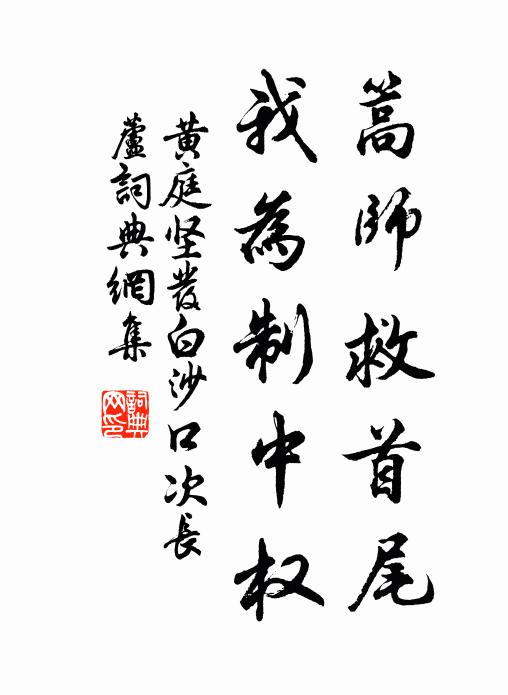 蒿師救首尾
我為制中权
黄庭坚發白沙口次長
蘆詞典網集
詞典网印